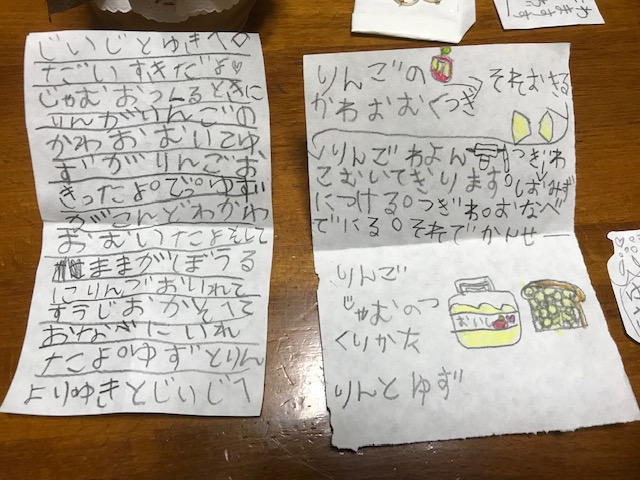 じいじとゆきへ♡
だいすきだよ♡
じゃむおつくるときに
りんがりんごの
かわおむいてゆ
ずがりんごお
きったよ。でっゆず
がこんどわかわ
おむいたよそして
ままがぼうる
にりんごおいれて
すうじおかぞえて
おなべにいれ
たよ。ゆずとりん
よりゆきとじいじへ
りんごの
それおきる
かわおむくつぎ
りんごわよん
つぎわ
こむいてきります。しおみず
につける。つぎわ。おなべ
でにる。それでかんせー
りんご
じゃむのつ
くりかた
おいし
りんとゆず